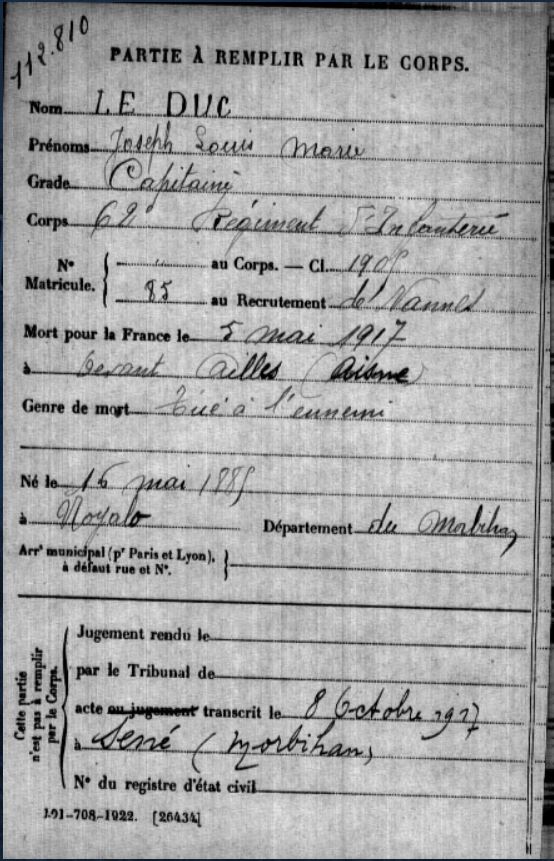 112.810
PARTIE À REMPLIR PAR LE CORPS.
Nom LE DUC
Prénoms Joseph Louis Marie
Grade Capitaine
Corps 62e Régiment d'Infanterie
N° Matricule. { " au Corps. — Cl. 1905
85 au Recrutement de Vannes
Mort pour la France le 5 mai 1917
à devant Ailles (Aisne)
Genre de mort Tué à l'ennemi
Né le 16 mai 1885
à Noyalo Département du Morbihan
Arrt municipal (pr Paris et Lyon),
à défaut rue et N°.
Cette partie n'est pas à remplir par le Corps.
Jugement rendu le
par le Tribunal de
acte ou jugement transcrit le 8 Octobre 1917
à Séné (Morbihan)
N° du registre d'état civil
101-708-1922. [26434]